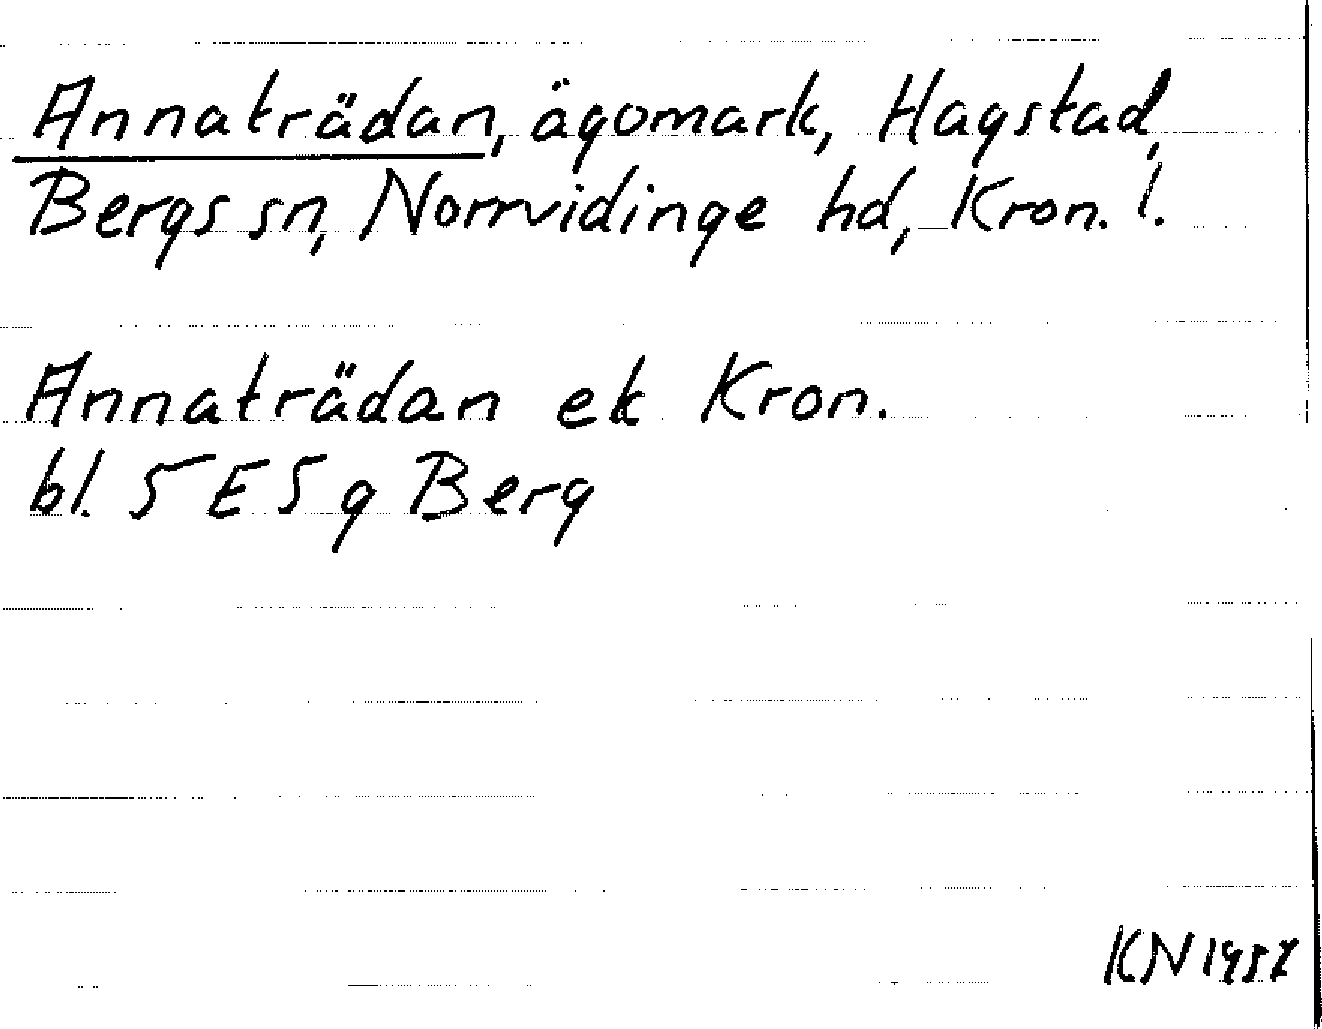 Annaträdan, ägomark, Hagstad,
Bergs sn, Norrvidinge hd, Kron. l.
Annaträdan ek Kron.
bl. 5E5g Berg
KN 1957